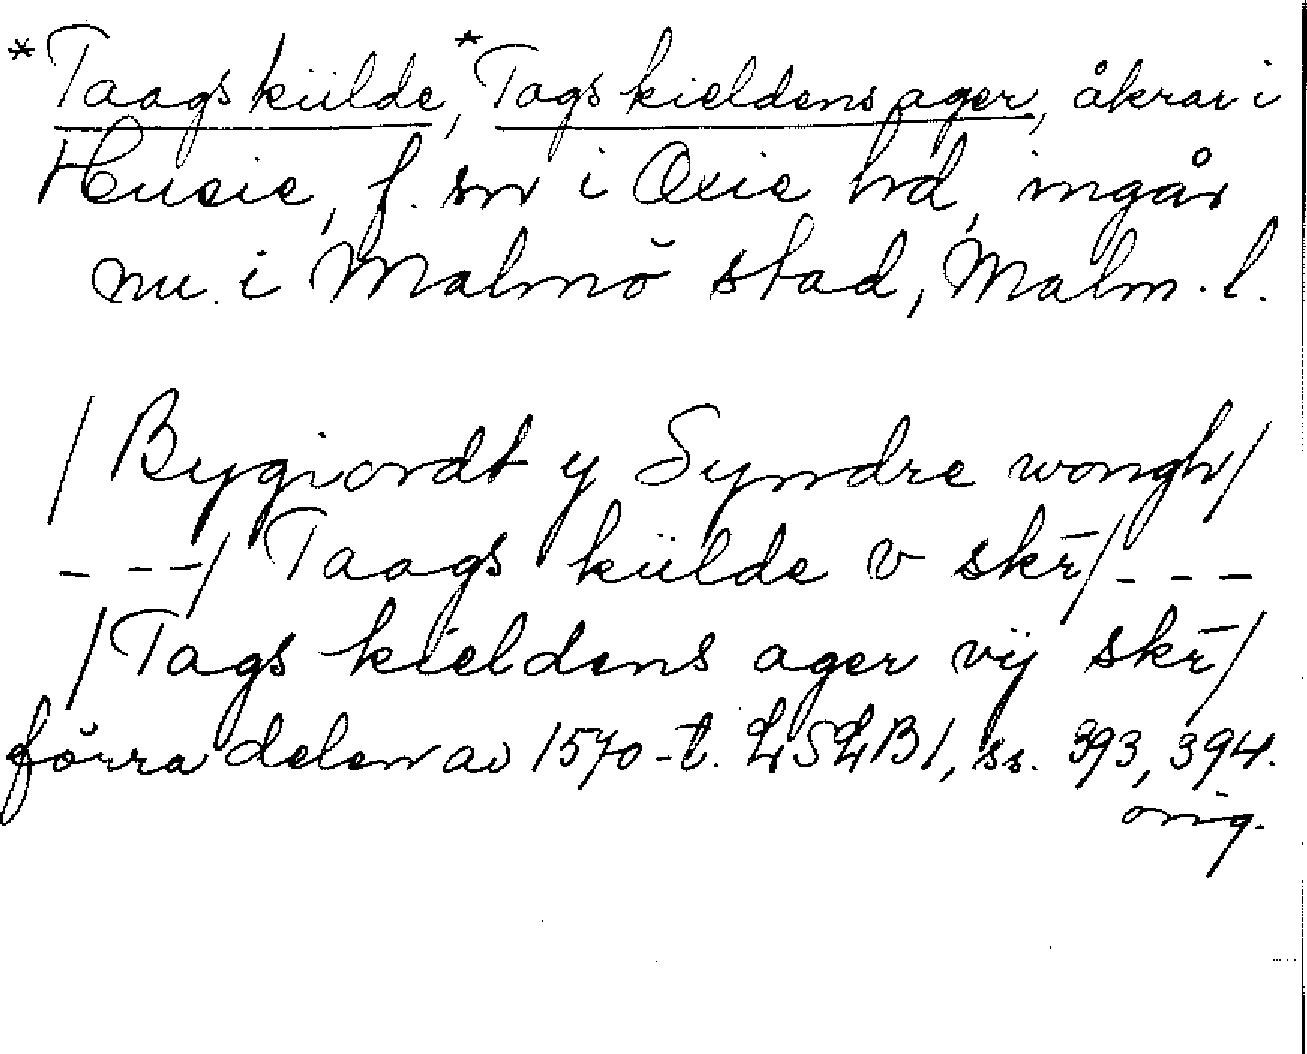 *Taagskiilde, *Tagskieldens ager, åkrar i
Husie, f. sn i Oxie hd, ingår
nu i Malmö stad, Malm. l.
/ Bygiordt y Syndre wongh/
_ _ _/ Taags kiilde v skr̄/_ _ _
/Tags kieldens ager vij skr̄/
förra delen av 1570-t. LSLB1, ss. 393, 394.
orig.